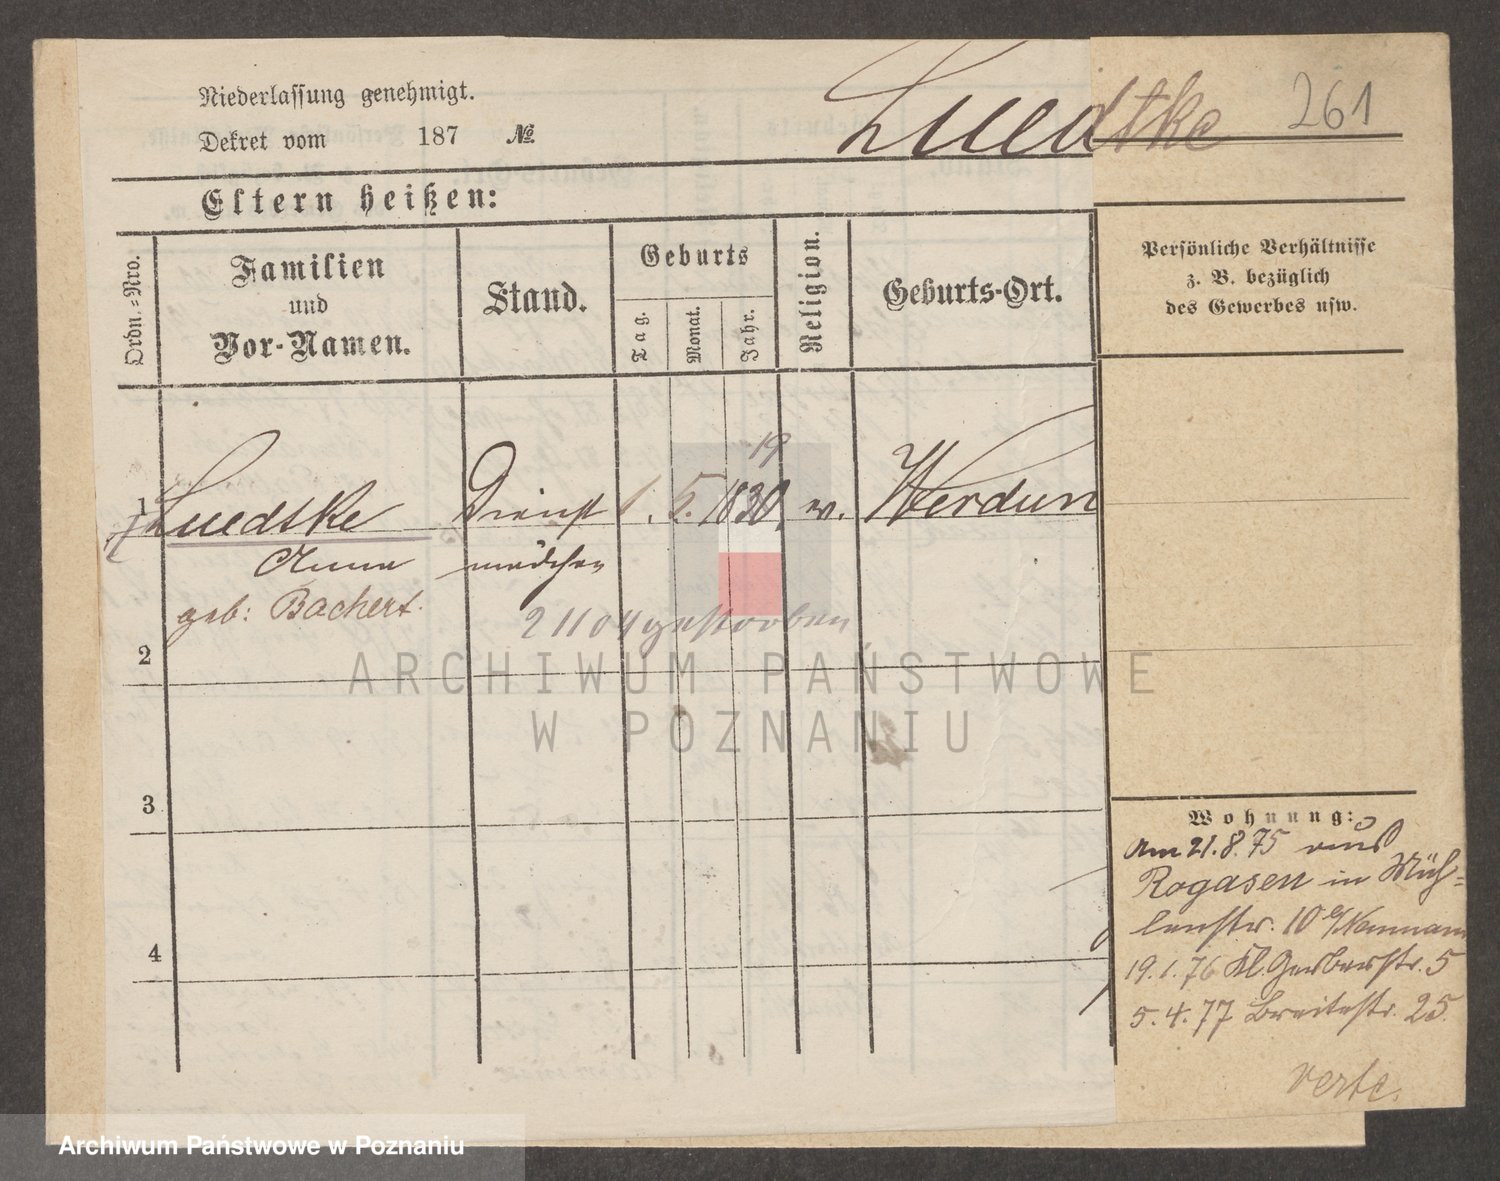 Niederlassung genehmigt.
Luedtke 261
Dekret vom 187 №
Eltern heißen:
Ordn.-Nro.
Familien
und
Vor-Namen.
Stand.
Geburts
Tag.
Monat.
Jahr.
Religion.
Geburts-Ort.
Persönliche Verhältnisse
z. B. bezüglich
des Gewerbes usw.
19
1 Luedtke Dienst 1. 5. 1830. ev. Werdum
Anna mädchen
geb: Bachert.
2 11 04 gestorben
2
3
4
Wohnung:
Am 21.8.75 aus
Rogasen in Müh-
lenstr. 10 b/Neumann
19.1.76 Kl. Gerberstr. 5
5.4.77 Breitestr. 25.
verte.
ARCHIWUM PAŃSTWOWE
W POZNANIU
Archiwum Państwowe w Poznaniu